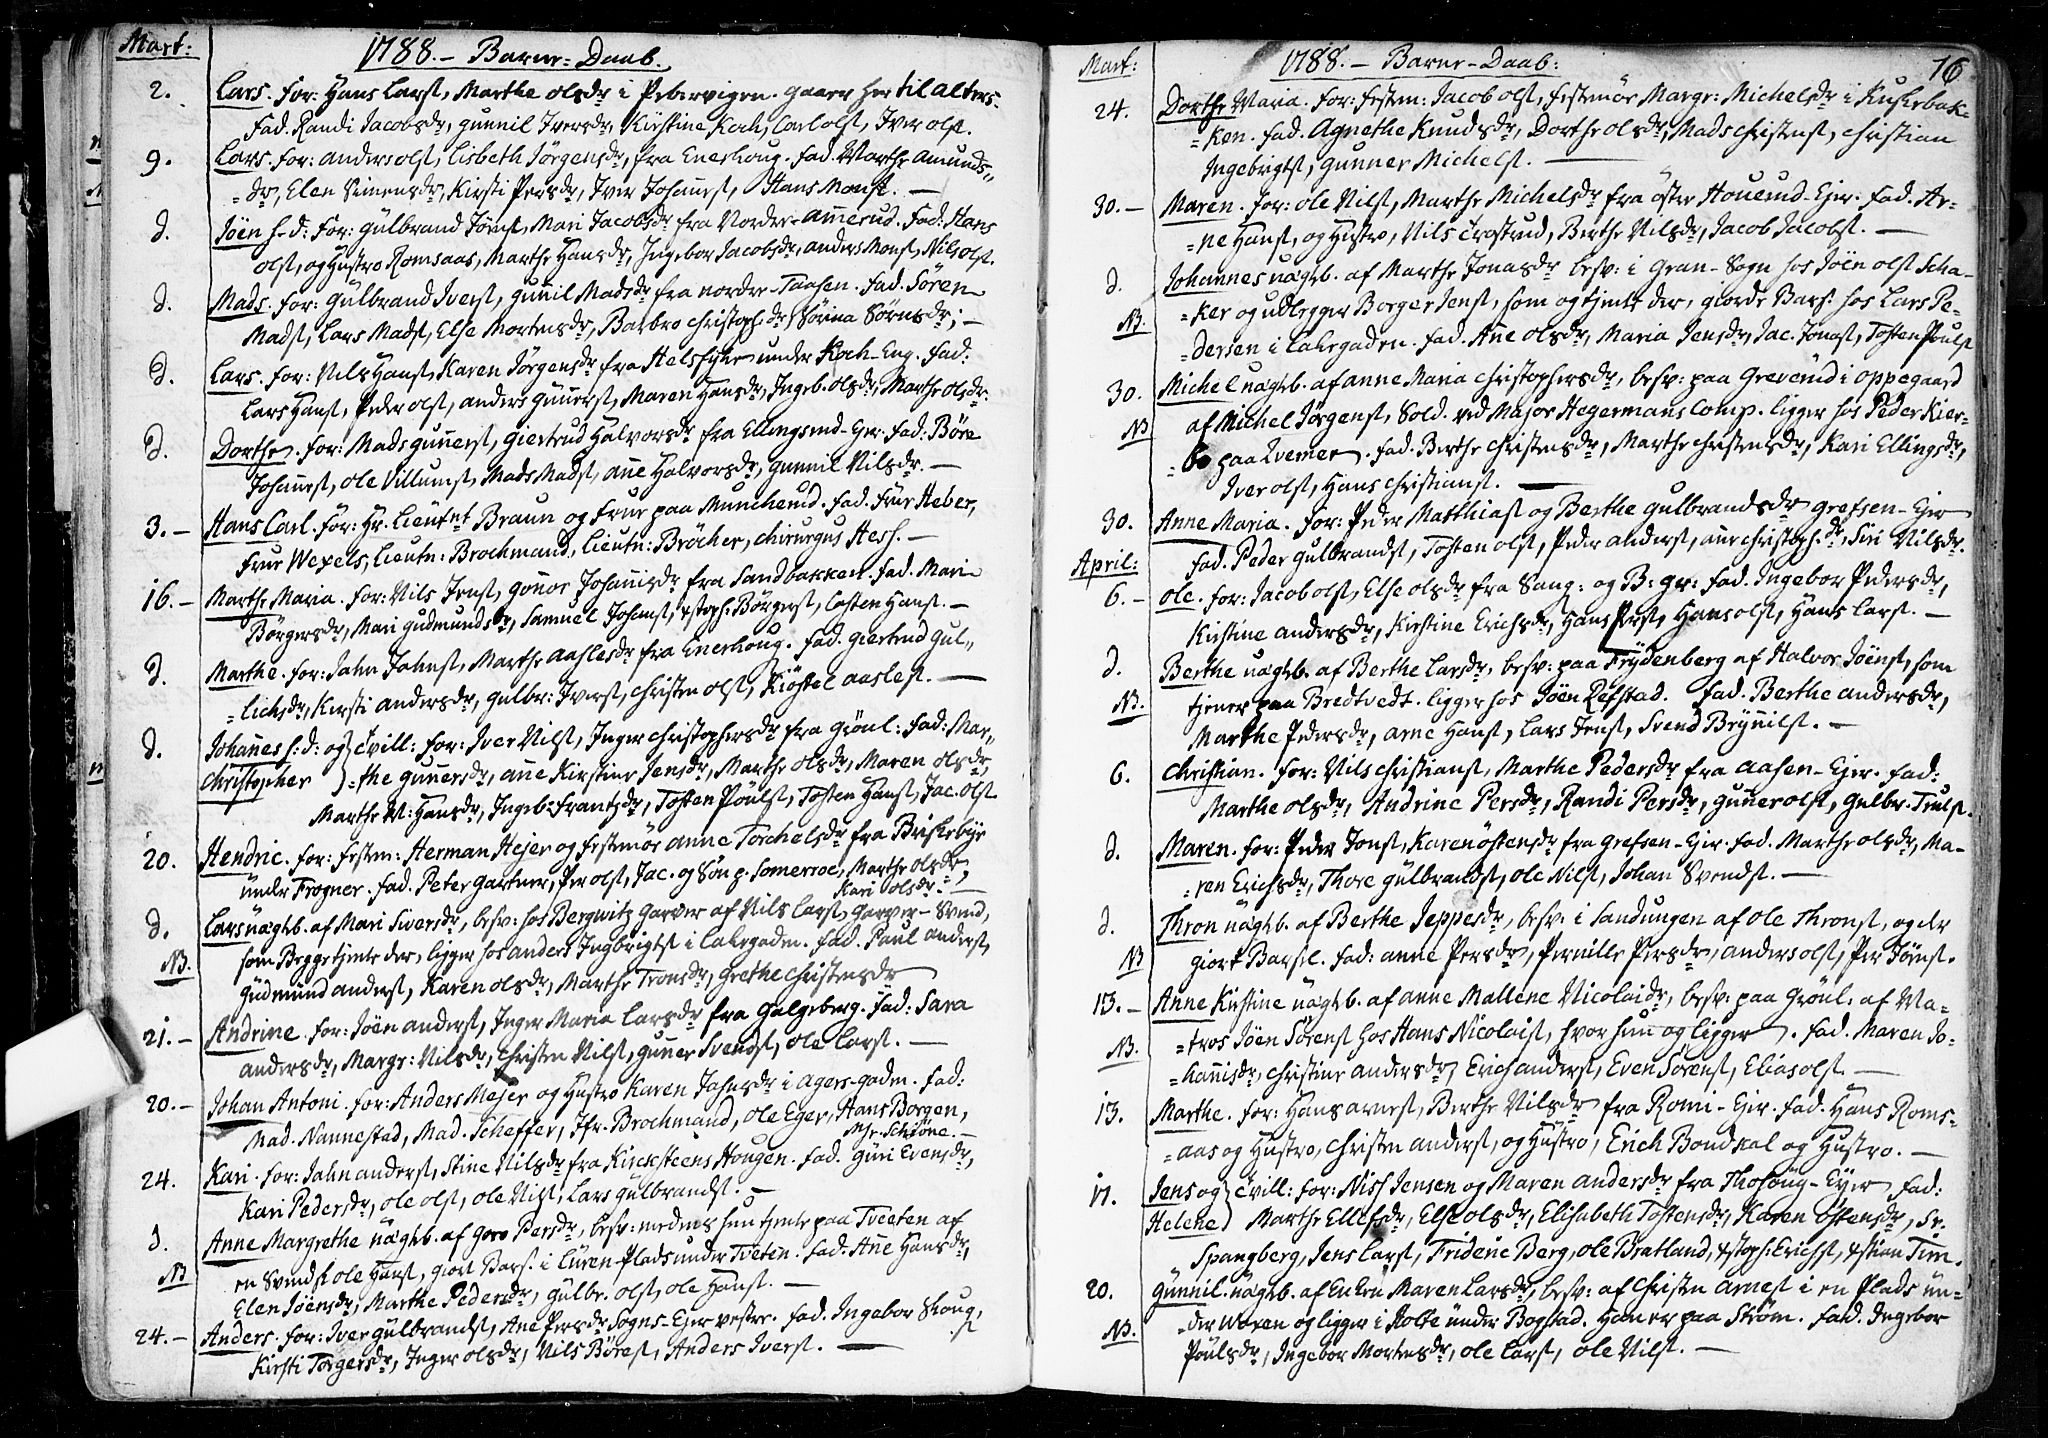 Mart: 1788. – Barne-Daab.
2. Lars. For: Hans Larsȷ, Marthe olsdr i Pebervigen. gaaer her til alters.
Fad. Randi Jacobsdr, gunnil Iversdr, Kirstine Koch, Carl ols, Iver ols.
9. Lars. For: anders ols, Lisbeth Jörgensdr, fra Enerhoug. Fad. Marthe Amunds-
=dr, Elen Simensdr, Kirsti Persdr, Iver Johans, Hans Mons. —
d. Jöen h-d: For: Gulbrand Jöns, Mari Jacobsdr fra Nordre-Amerud. Fad: Hans
ols, og Hustro Romsaas, Marthe Hansdr, Ingebor Jacobsdr, anders Mons, Nils ols.
d. Mads. For: Gulbrand Ivers, gunil Madsdr fra nordre-Taasen. Fad. Sören
Mads, Lars Mads, Else Mortensdr, Barbro Christoph.dr, Sörina Sörnsdr; —
d. Lars. For: Nils Hans, Karen Jörgensdr fra Helsfyer under Koch-Eng. Fad:
Lars Hans, Peder ols, anders Guners, Maren Hansdr, Ingeb. olsdr, Marthe olsdr.
d. Dorthe. For: Mads gunners, giertrud Halvorsdr fra Ellingsrud-Ejer. Fad: Böre
Johans, ole Villums, Mads Mads, ane Halvorsdr, gunnil Nilsdr. —
3. – Hans Carl. För: Hr. Lieutnt Braun og Frue paa Muncherud. Fad. Frue Heber,
Frue Wexels, Lieutn: Brochmand, Lieutn: Bröcher, chirurgus Hess. —
16. – Marthe Maria. For: Nils Jens, gonor Johanisdr fra Sandbakken. Fad. Mari
Börgersdr, Mari gudmundsdr, Samuel Johans, xstoph: Börgers, Casten Hans. —
d. Marthe. For: Jahn Jahns, Marthe aaslesdr fra Enerhoug. Fad. giertrud Gul-
=lichsdr, Kirsti andersdr, gulbr: Ivers, christen ols, Kiöstel aasles. —
d. Johanes h:d: og } Tvill: For: Iver Nils, Inger christophersdr fra Grönl: Fad: Mar-
Christopher } =the gunersdr, ane Kirstine Jensdr, Marthe olsdr, Maren olsdr,
Marthe M: Hansdr, Ingeb: Frantzdr, Tosten Pouls, Tosten Hans, Jac. ols
20. Hendric. For: Festem: Herman Hejer og Festemöe anne Torchelsdr fra Briskebye
under Frogner. Fad. Peter gartner, Per ols, Jac. og Sön p. Somerroe, Marthe olsdr,
Kari olsdr. —
d. Lars uægtb. af Mari Siversdr, besv: hos Bergwitz garver af Nils Lars, garver-Svend,
NB. som Begge tjente der, ligger hos anders Ingbrigts i Lakegaden. Fad. Paul anders,
Gudmund anders, Karen olsdr, Marthe Tronsdr, Grethe Christensdr
21. – Andrine. For: Jöen anders, Inger Maria Larsdr fra Galgeberg. Fad: Sara
andersdr, Margr: Nilsdr, Christen Nils, guner Svends, ole Lars. —
20. – Johan Antoni. For: Anders Mejer og Hustro Karen Jahnsdr i agers-gaden. Fad:
Mad. Nannestad, Mad. Scheffer, Jfr. Brochmand, ole Eger, Hans Borgen,
Mr. Schröne. —
24. Kari. For: Jahn anders, Stine Nilsdr fra Kirchesteens Hougen. Fad. Guri Evensdr,
Kari Pedersdr, ole ols, ole Nils, Lars gulbrands. —
d. Anne Margrethe uægtb. af Goro Persdr, besv: medens hun tjente paa Tveeten af
NB en Svend ole Hans, giort Bars: i Luren-Plads under Tveten. Fad: Ane Hansdr,
Elen Jöensdr, Marthe Pedersdr, Gulbr. ols, ole Hans. —
24. – Anders. For: Iver gulbrands, Ane Persdr Sogns-Ejer vestre. Fad. Ingebor Skougs
Kirsti Torgersdr, Inger olsdr, Nils Böres, Anders Ivers. —
Mart: 1788. – Barne-Daab: 16
24. Dorthe Maria. For: Festem: Jacob ols, Festemöe Margr: Michelsdr i Kuskebak-
=ken. Fad. Agnethe Knudsdr, Dorthe olsdr, Mads Christens, Christian
Ingebrigts, gunner Michels. —
30. – Maren. For: ole Nils, Marthe Michelsdr fra öster Houerud-Ejer. Fad. Ar-
=ne Hans, og Hustro, Nils Trostrud, Berthe Nilsdr, Jacob Jacobs. —
d. Johannes uægtb. af Marthe Jonasdr besv: i Gran-Sogn hos Jöen ols Scha-
NB. =ker og udlegger Borger Jens, som og tjente der, giorde Bars: hos Lars Pe-
=dersen i Lakegaden. Fad. Ane olsdr, Maria Jensdr, Jac. Jonas, Tosten Pouls
30. Michel uægtb. af anne Maria Christophersdr, besv: paa Greverud i oppegaard
NB af Michel Jörgens, Sold. ved Major Hegermans Comp. ligger hos Peder Kier-
=bo paa Qverner. Fad. Berthe Christensdr, Marthe Christensdr, Kari Ellingsdr,
Iver ols, Hans Christians. —
30. Anne Maria. For: Peder Matthias og Berthe Gulbrandsdr Grefsen-Ejer
Fad. Peder Gulbrands, Tosten ols, Peder anders, ane Christoph.dr, Siri Nilsdr.
April:
6. – ole. For: Jacob ols, Else olsdr fra Sang: og B: Gr: Fad. Ingebor Pedersdr,
Kirstine andersdr, Kirstine Erichsdr, Hans Pers, Hans ols, Hans Lars. —
d. Berthe uægtb. af Berthe Larsdr, besv: paa Frydenberg af Halvor Jöens, som
NB. tjener paa Bredtvedt. ligger hos Jöen Refstad. Fad. Berthe andersdr,
Marthe Pedersdr, arne Hans, Lars Jens, Svend Brynils. —
6. Christian. For: Nils Christians, Marthe Pedersdr fra Aasen-Ejer. Fad:
Marthe olsdr, Andrine Persdr, Randi Persdr, Gunner ols, Gulbr. Truls.
d. Maren. For: Peder Jons, Karen östensdr fra Grefsen-Ejer. Fad. Marthe olsdr, Ma-
=ren Erichsdr, Thore Gulbrands, ole Nils, Johan Svends. —
d. Thron uægtb. af Berthe Jeppesdr, besv: i Sandungen af ole Throns, og der
NB giort Barsel. Fad: anne Persdr, Pernille Persdr, anders ols, Per Jöns.
13. – Anne Kirstine uægtb. af anne Mallene Nicolaidr, besv: paa Grönl: af Ma-
NB. =tros Jöen Sörens hos Hans Nicolais, hvor hun og ligger. Fad. Maren Jo-
=hanisdr, Christine Andersdr, Erich anders, Even Sörens, Elias ols. —
13. Marthe. For: Hans arnes, Berthe Nilsdr fra Romi-Ejer. Fad. Hans Roms-
=aas og Hustro, Christen anders, og Hustro, Erich Bondkal og Hustro. —
17. Jens og } Tvill: For: Niss Jensen og Maren andersdr fra Thoshoug-Ejer Fad:
Helene } Marthe Ellefsdr, Else olsdr, Elisabeth Tostensdr, Karen östensdr, Sr.
Spangberg, Jens Lars, Frideric Berg, ole Bratland, xstoph: Erichs, xstian Tim.
20. Gunnil. uægtb. af Enken Maren Larsdr, besv: af Christen Arnes i en Plads un-
NB. =der Woxen og ligger i Holte under Bogstad. Han er paa Ström. Fad. Ingebor
Poulsdr, Ingebor Mortensdr, ole Lars, ole Nils. —